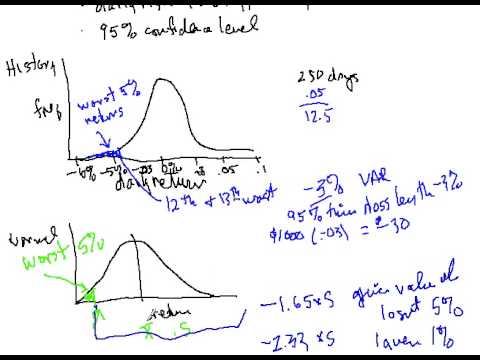 95% confidence level
Histor
freq
worst 5%
returns
-6% -5% -.03 .05 .1
12th & 13th worst
250 days
.05
12.5
-3% VAR
95% time loss -3%
$1000 (-.03) = -30
normal
worst 5%
return
-1.65*S gives value at
lowest 5%
-2.33*S lower 1%